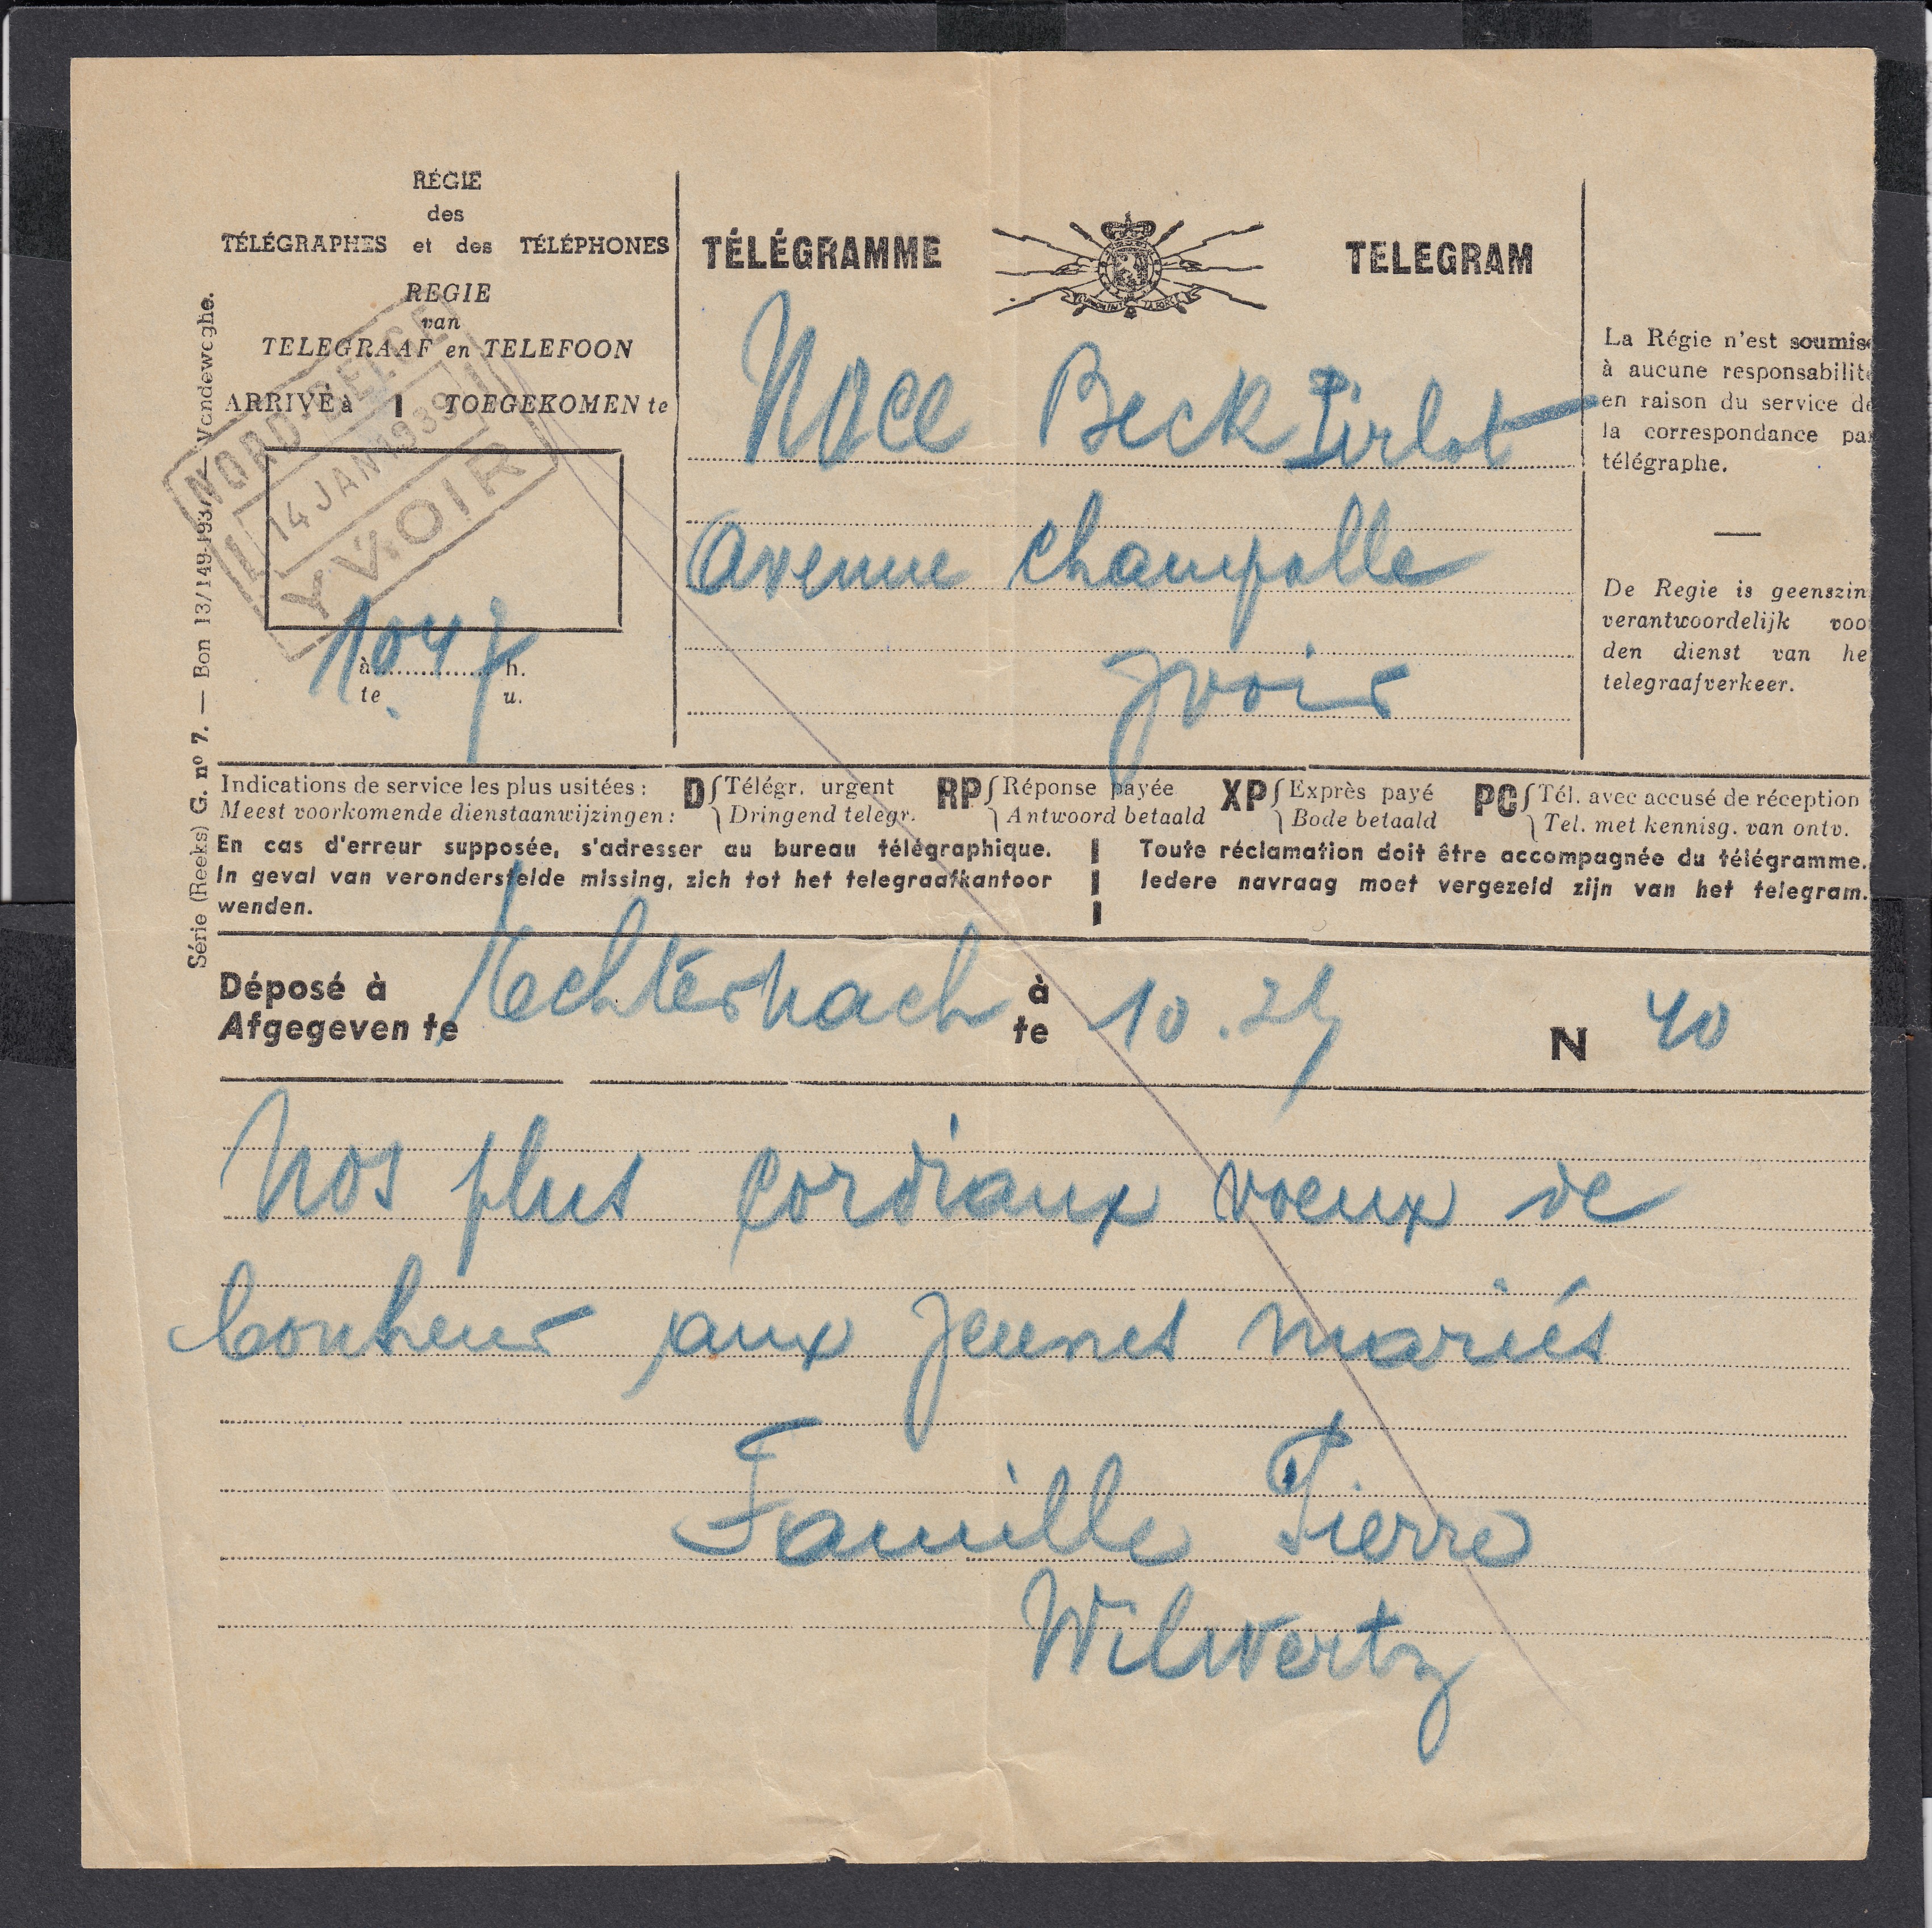 RÉGIE
des
TÉLÉGRAPHES et des TÉLÉPHONES
REGIE
van
TELEGRAAF en TELEFOON
ARRIVÉ à | TOEGEKOMEN te
NORD-BELGE
14 JAN 1939
YVOIR
1047
à h.
te u.
Série (Reeks) G. nº 7. — Bon 13/149-193 Vandeweghe.
TÉLÉGRAMME TELEGRAM
Noce Beck Pirlot
avenue Champalle
Yvoir
La Régie n'est soumise
à aucune responsabilité
en raison du service de
la correspondance par
télégraphe.
De Regie is geenszin
verantwoordelijk voo
den dienst van he
telegraafverkeer.
Indications de service les plus usitées :
Meest voorkomende dienstaanwijzingen :
D Télégr. urgent
Dringend telegr.
RP Réponse payée
Antwoord betaald
XP Exprès payé
Bode betaald
PC Tél. avec accusé de réception
Tel. met kennisg. van ontv.
En cas d'erreur supposée, s'adresser au bureau télégraphique.
In geval van veronderstelde missing, zich tot het telegraafkantoor
wenden.
Toute réclamation doit être accompagnée du télégramme.
Iedere navraag moet vergezeld zijn van het telegram.
Déposé à Echternach à 10.25 N 40
Afgegeven te te
Nos plus cordiaux voeux de
bonheur aux jeunes mariés
Famille Pierre
Wilwertz